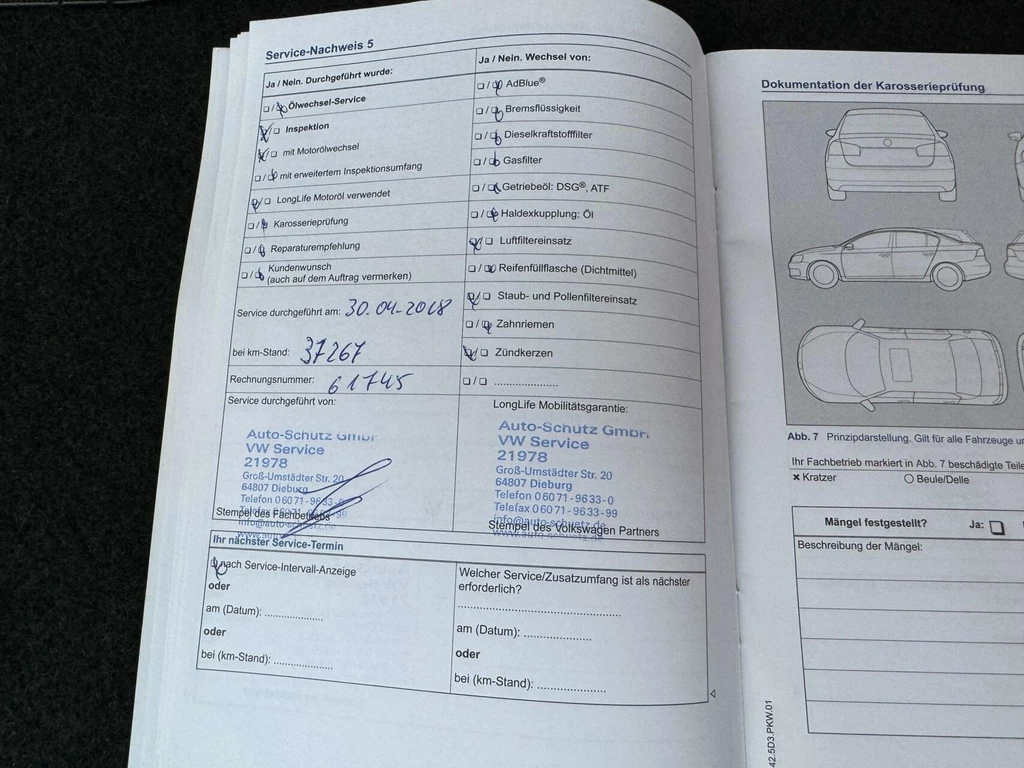 Service-Nachweis 5
Ja / Nein. Durchgeführt wurde:
☐/☒ Ölwechsel-Service
☒/☐ Inspektion
☒/☐ mit Motorölwechsel
☐/☒ mit erweitertem Inspektionsumfang
☒/☐ LongLife Motoröl verwendet
☐/☒ Karosserieprüfung
☐/☒ Reparaturempfehlung
☐/☒ Kundenwunsch
(auch auf dem Auftrag vermerken)
Service durchgeführt am: 30.04-2018
bei km-Stand: 37267
Rechnungsnummer: 61745
Service durchgeführt von:
Auto-Schutz GmbH
VW Service
21978
Groß-Umstädter Str. 20
64807 Dieburg
Telefon 06071-9633-0
Telefax 06071-9633-99
Stempel des Fachbetriebs
Ja / Nein. Wechsel von:
☐/☒ AdBlue®
☐/☒ Bremsflüssigkeit
☐/☒ Dieselkraftstofffilter
☐/☒ Gasfilter
☐/☒ Getriebeöl: DSG®, ATF
☐/☒ Haldexkupplung: Öl
☒/☐ Luftfiltereinsatz
☐/☒ Reifenfüllflasche (Dichtmittel)
☒/☐ Staub- und Pollenfiltereinsatz
☐/☒ Zahnriemen
☒/☐ Zündkerzen
☐/☐ ......................
LongLife Mobilitätsgarantie:
Auto-Schutz GmbH
VW Service
21978
Groß-Umstädter Str. 20
64807 Dieburg
Telefon 06071-9633-0
Telefax 06071-9633-99
info@auto-schuetz.de
Stempel des Volkswagen Partners
www.auto-schuetz.de
Ihr nächster Service-Termin
☒ nach Service-Intervall-Anzeige
oder
am (Datum): ....................
oder
bei (km-Stand): ....................
Welcher Service/Zusatzumfang ist als nächster
erforderlich?
..................................................
am (Datum): ......................
oder
bei (km-Stand): ......................
Dokumentation der Karosserieprüfung
Abb. 7 Prinzipdarstellung. Gilt für alle Fahrzeuge
Ihr Fachbetrieb markiert in Abb. 7 beschädigte Teile
× Kratzer ○ Beule/Delle
Mängel festgestellt? Ja: ☐
Beschreibung der Mängel:
42.5D3.PKW.01